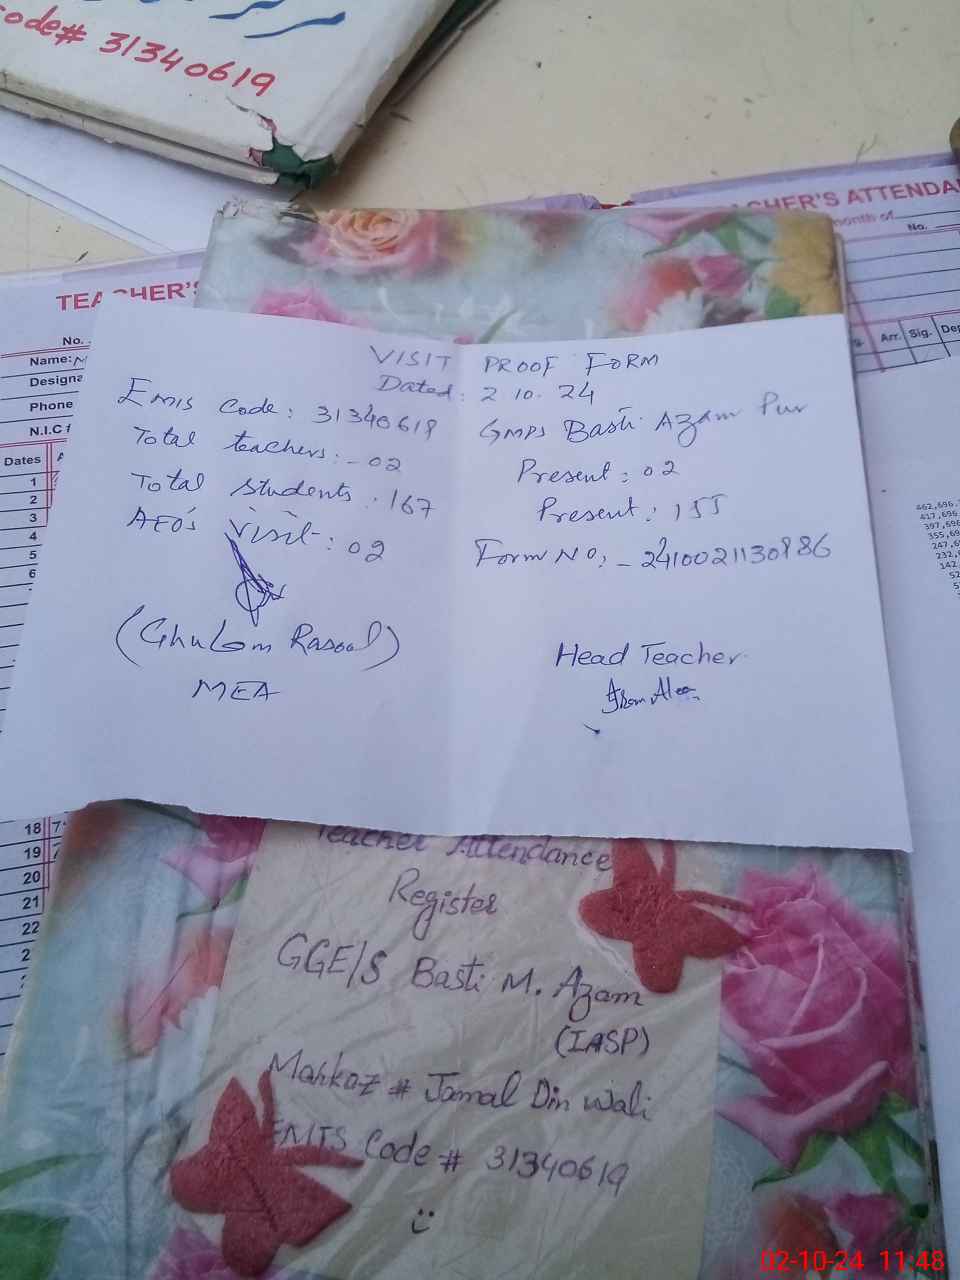 code# 31340619
TEACHER'S
No.
Name:
Designa
Phone
N.I.C
Dates
1
2
3
4
5
6
TEACHER'S ATTENDA
month of
No.
Arr. Sig. Dep
VISIT PROOF FORM
Dated: 2.10.24
EMIS Code: 31340619 GMPS Basti Azam Pur
Total teachers:-02 Present:02
Total Students:167 Present:155
AEO's Visit:02 Form No:-2410021130886
(Ghulam Rasool)
MEA
Head Teacher
18
19
20
21
22
2
Teacher Attendance
Register
GGE/S Basti M. Azam
(IASP)
Markaz # Jamal Din wali
EMIS Code # 31340619
02-10-24 11:48